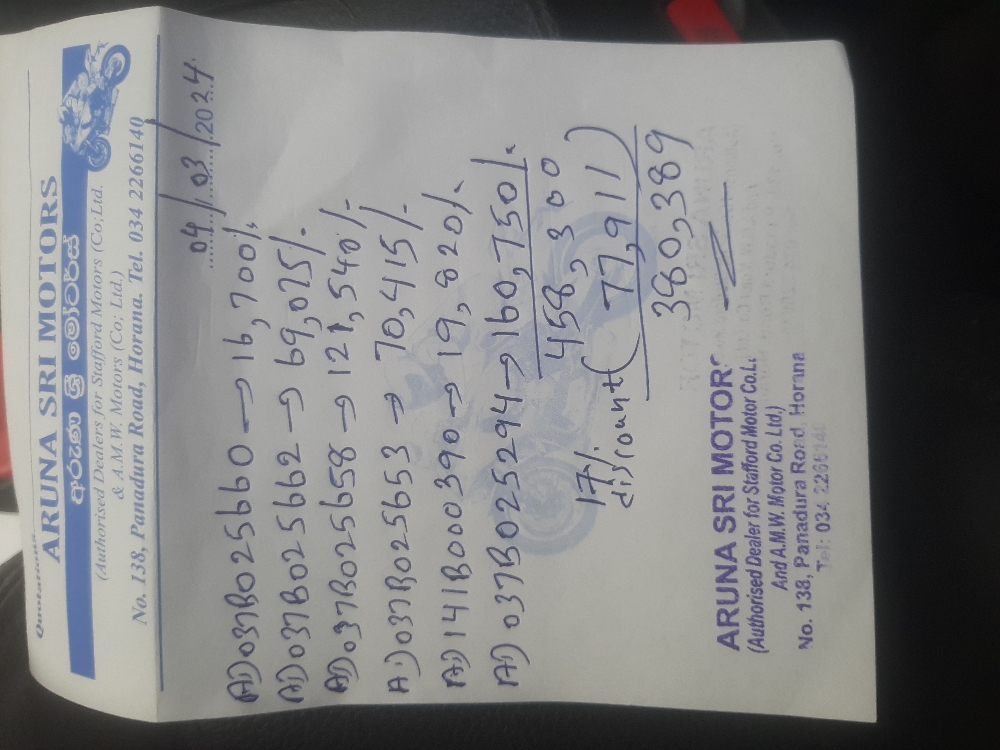 Quotations
ARUNA SRI MOTORS
අරුණ ශ්‍රී මෝටර්ස්
(Authorised Dealers for Stafford Motors (Co; Ltd.
& A.M.W. Motors (Co; Ltd.)
No. 138, Panadura Road, Horana. Tel. 034 2266140
04/03/2024
A)037B025660 → 16,700/.
A)037B025662 → 69,075/.
A)037B025658 → 121,540/-
A)037B025653 → 70,415/-
A)141B000390 → 19,820/.
A)037B025294 → 160,750/.
458,300
17% discount (77,911)
380,389
ARUNA SRI MOTORS
(Authorised Dealer for Stafford Motor Co.L
And A.M.W. Motor Co. Ltd.)
No. 138, Panadura Road, Horana
Tel: 034 2266140